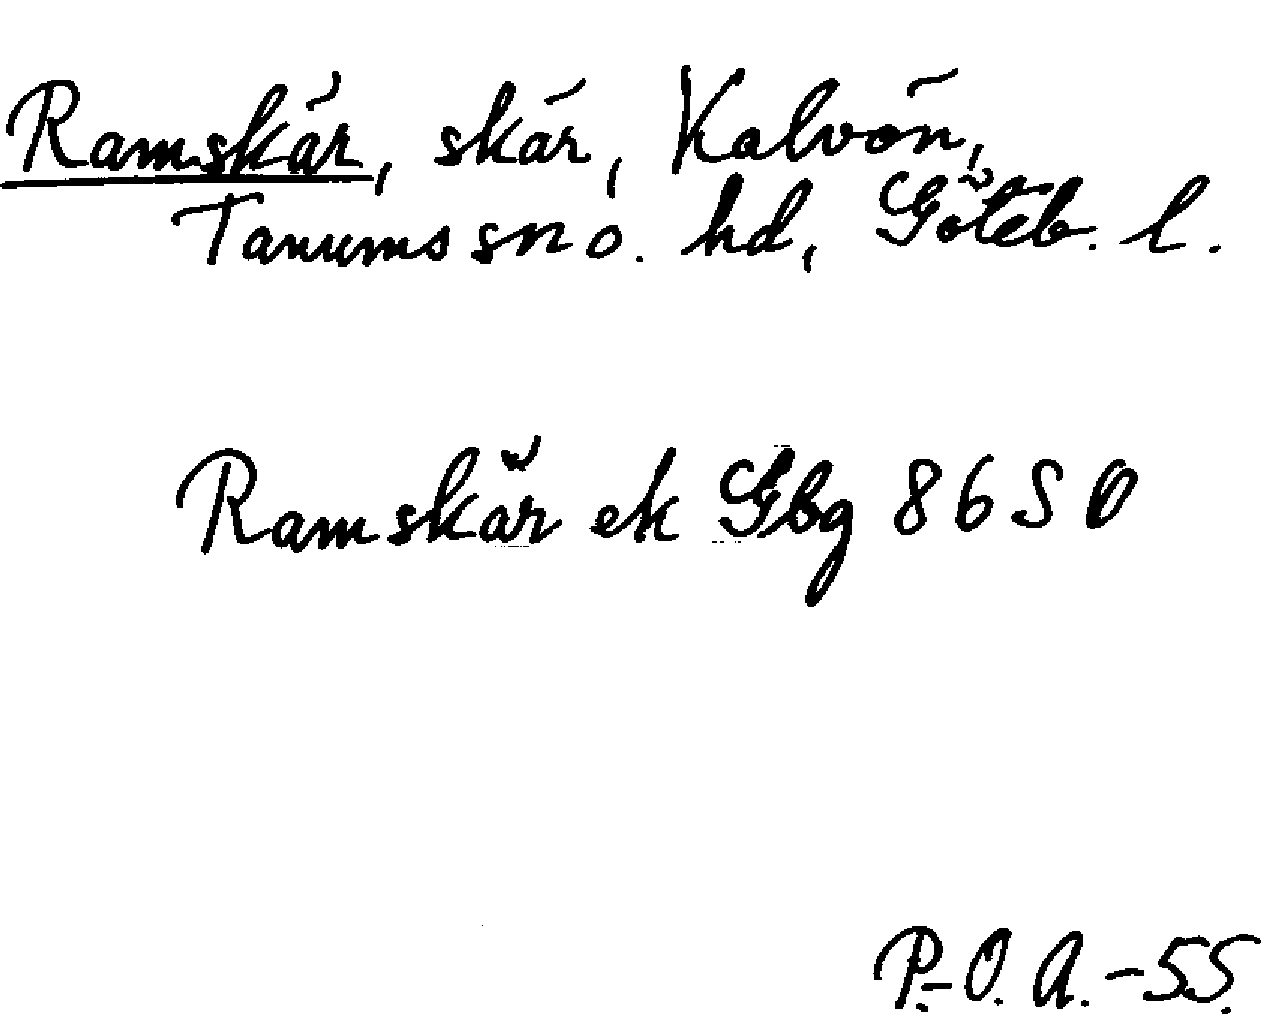 Ramskär, skär, Kalvön,
Tanums sn o. hd, Göteb. l.
Ramskär ek Gbg 8650
P.-O. A. -55.